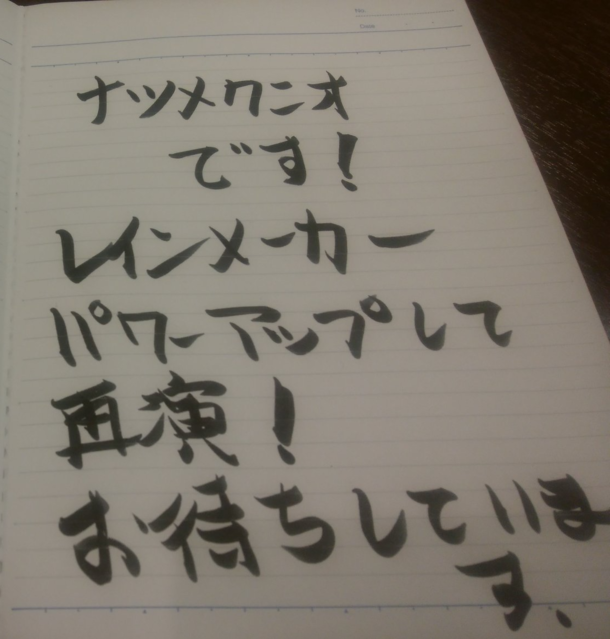 No.
Date
ナツメクニオ
です！
レインメーカー
パワーアップして
再演！
お待ちしていま
す．